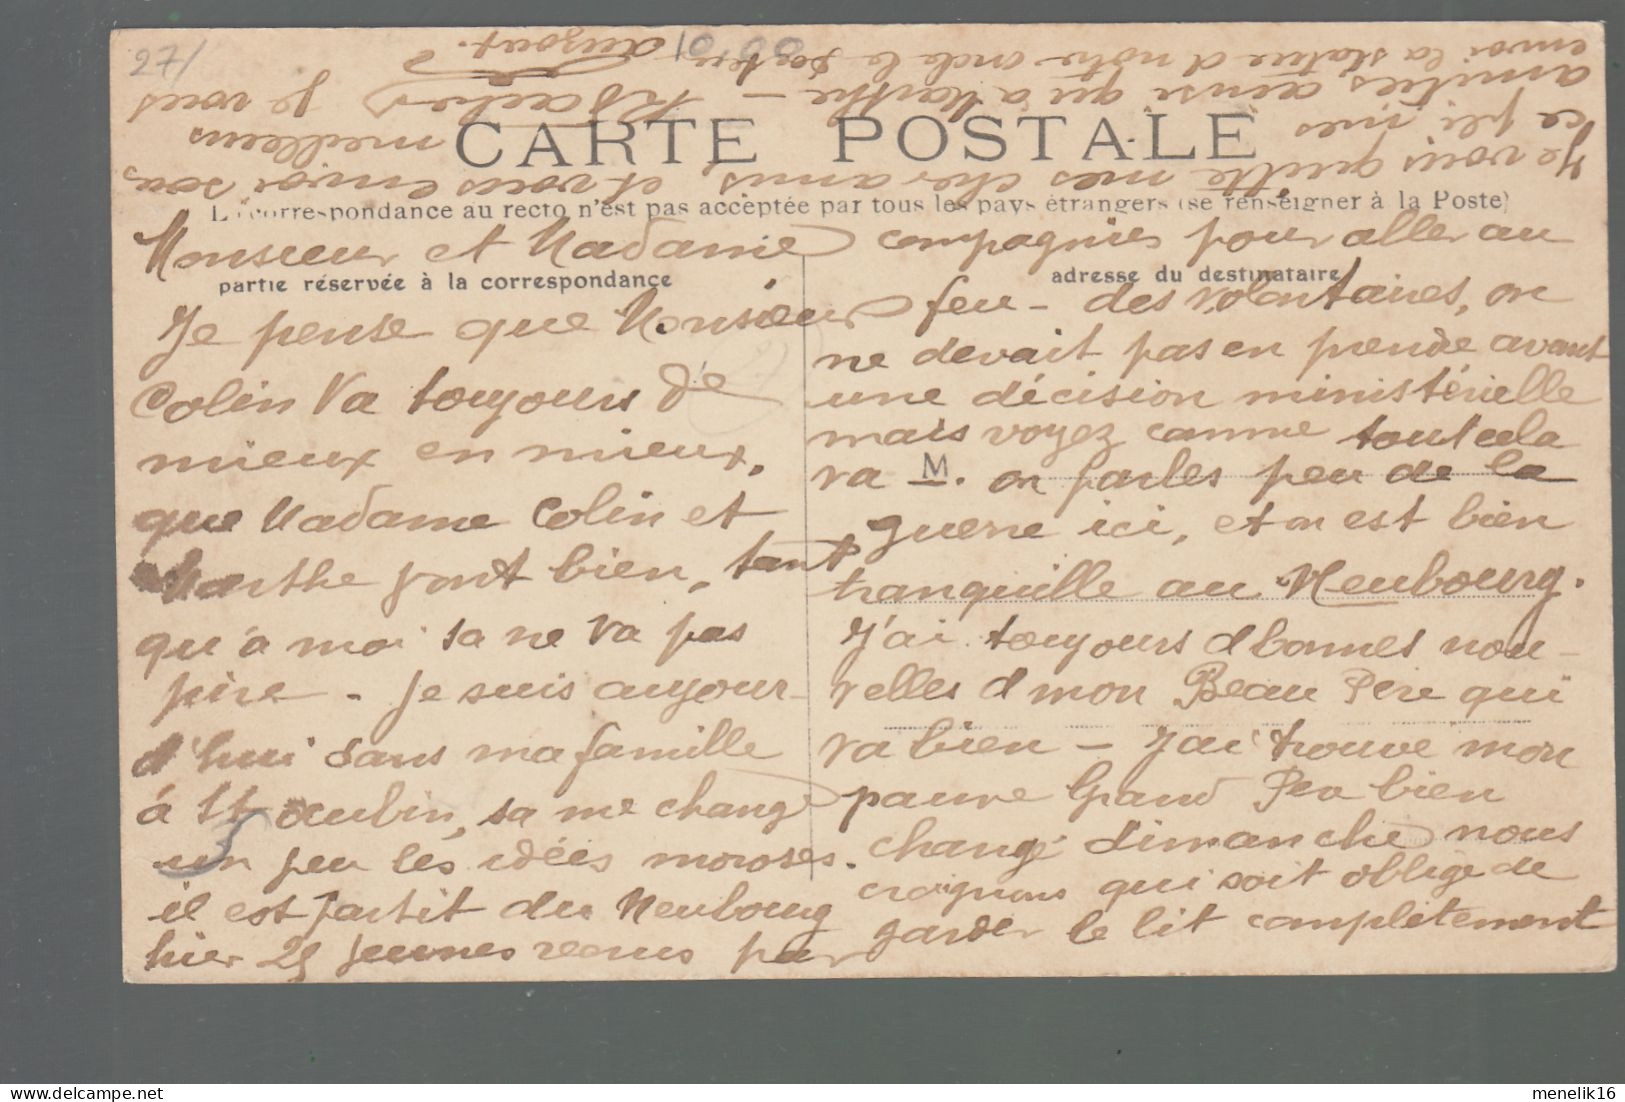 27/
10.00
CARTE POSTALE
La correspondance au recto n'est pas acceptée par tous les pays étrangers (se renseigner à la Poste)
partie réservée à la correspondance
adresse du destinataire
Monsieur et Madame
Je pense que Monsieur
Colin va toujours de
mieux en mieux,
que Madame Colin et
Marthe vont bien, tant
qu'à moi sa ne va pas
pire - je suis aujour-
d'hui dans ma famille
à St Aubin, sa me change
un peu les idées moroses.
il est partit du Neubourg
hier 25 jeunes venus par
compagnies pour aller au
feu - des volontaires, on
ne devait pas en prende avant
une décision ministérielle
mais voyez comme tout cela
va M. on parles peu de la
guerre ici, et on est bien
tranquille au Neubourg.
J'ai toujours d bonnes nou-
velles d mon Beau Père qui
va bien - j'ai trouve mon
pauvre Grand Père bien
changé dimanche nous
craignons qui soit oblige de
garder le lit complètement
Je vous quitte mes cher amis, et vous envoi sous
ce pli mes meilleurs
amities ainsi qu'a Marthe - Je vous
envoi la statue d notre oncle le
menelik16